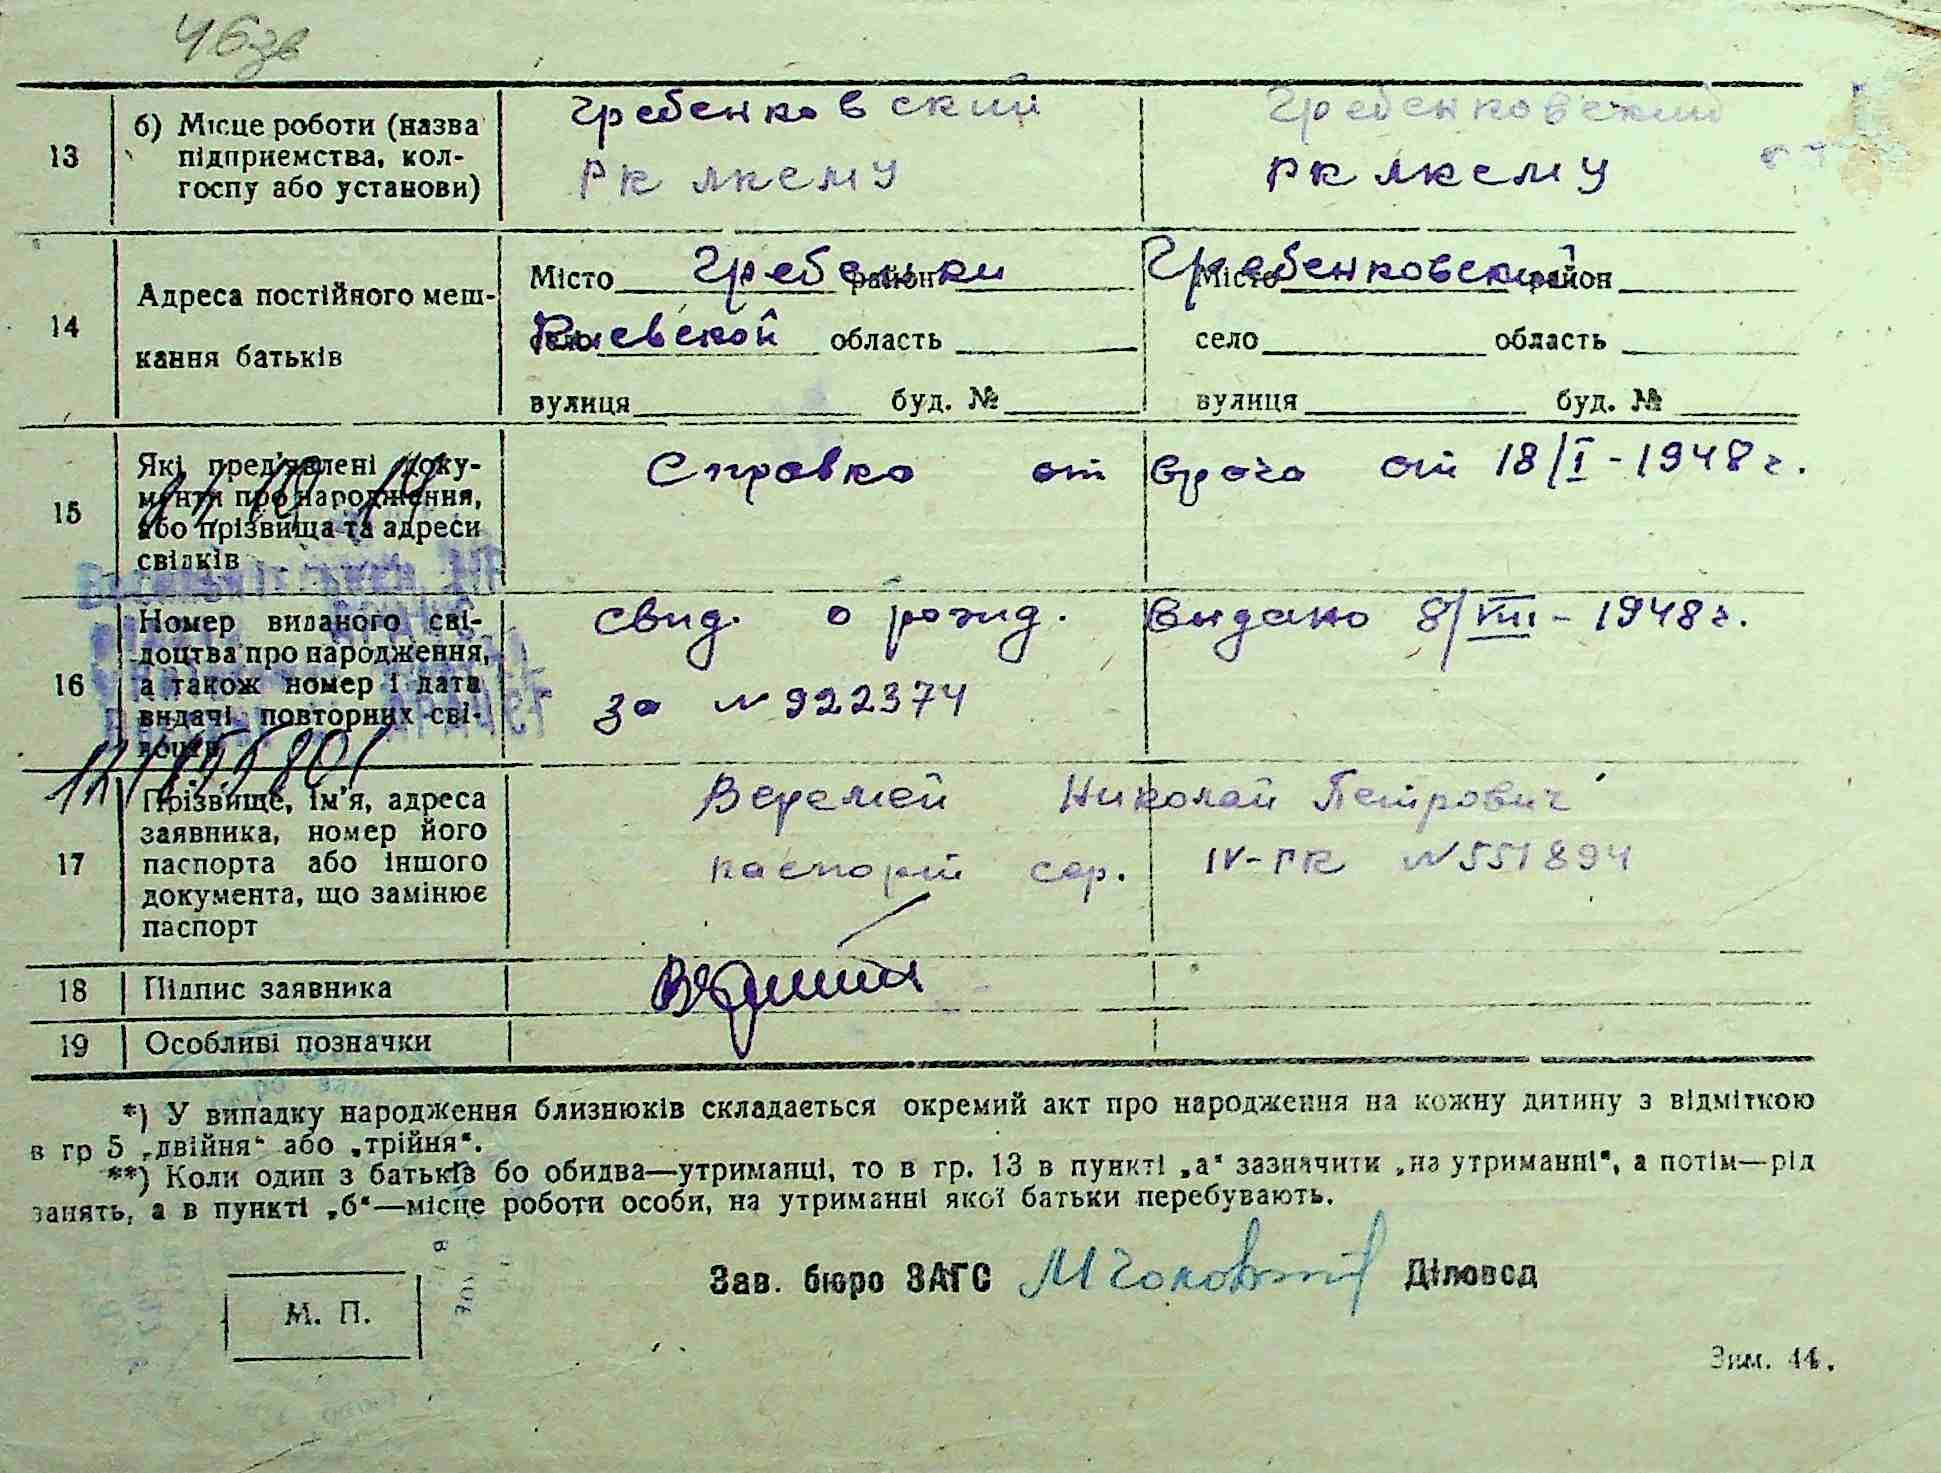 46зв
13
б) Місце роботи (назва
підприємства, кол-
госпу або установи)
Гребенковский
РК ЛКСМУ
Гребенковский
РК ЛКСМУ
14
Адреса постійного меш-
кання батьків
Місто Гребенки район
село Киевской область
вулиця буд. №
Місто Гребенковский район
село область
вулиця буд. №
15
Які пред'явлені доку-
менти про народження,
або прізвища та адреси
свідків
Справка от врача от 18/I-1948 г.
16
Номер виданого сві-
доцтва про народження,
а також номер і дата
видачі повторних сві-
доцтв
свид. о рожд. выдано 8/VIII-1948 г.
за N 922374
17
Прізвище, ім'я, адреса
заявника, номер його
паспорта або іншого
документа, що замінює
паспорт
Веремей Николай Петрович
паспорт сер. IV-РК N 551894
18
Підпис заявника
19
Особливі позначки
*) У випадку народження близнюків складається окремий акт про народження на кожну дитину з відміткою
в гр 5 „двійня“ або „трійня“.
**) Коли один з батьків бо обидва—утриманці, то в гр. 13 в пункті „а“ зазначити „на утриманні“, а потім—рід
занять, а в пункті „б“—місце роботи особи, на утриманні якої батьки перебувають.
Зав. бюро ЗАГС Діловод
М. П.
Зим. 44.